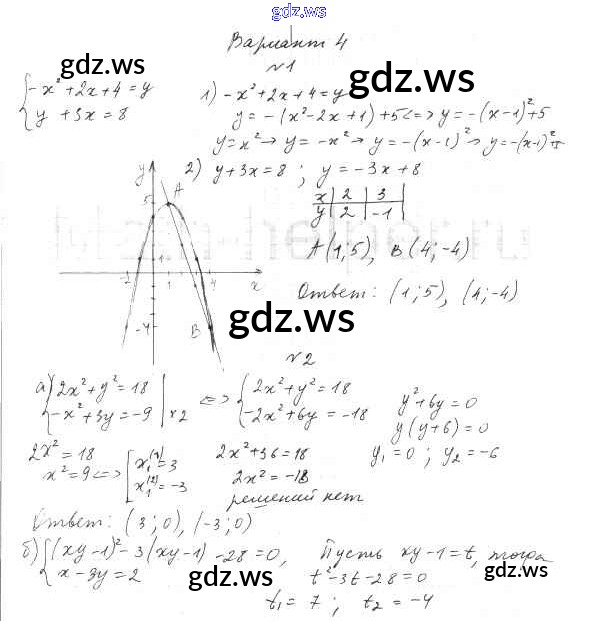 gdz.ws
Вариант 4
№1
{ -x² + 2x + 4 = y
{ y + 3x = 8
1) -x² + 2x + 4 = y
y = -(x² - 2x + 1) + 5 <=> y = -(x-1)² + 5
y = x² → y = -x² → y = -(x-1)² → y = -(x-1)² + 5
2) y + 3x = 8 ; y = -3x + 8
x | 2 | 3
y | 2 | -1
A(1; 5), B(4; -4)
Ответ: (1; 5), (4; -4)
y
5
A
1
-2 1 4 x
-4
B
№2
а) { 2x² + y² = 18
{ -x² + 3y = -9 | ×2
<=> { 2x² + y² = 18
{ -2x² + 6y = -18
y² + 6y = 0
y(y + 6) = 0
y₁ = 0 ; y₂ = -6
2x² = 18
x² = 9 <=> [ x₁⁽¹⁾ = 3
[ x₁⁽²⁾ = -3
2x² + 36 = 18
2x² = -18
решений нет
Ответ: (3; 0), (-3; 0)
б) { (xy - 1)² - 3(xy - 1) - 28 = 0,
{ x - 3y = 2
Пусть xy - 1 = t, тогда
t² - 3t - 28 = 0
t₁ = 7 ; t₂ = -4
gdz.ws
gdz.ws
gdz.ws
gdz.ws
gdz.ws
gdz.ws
math-helper.ru